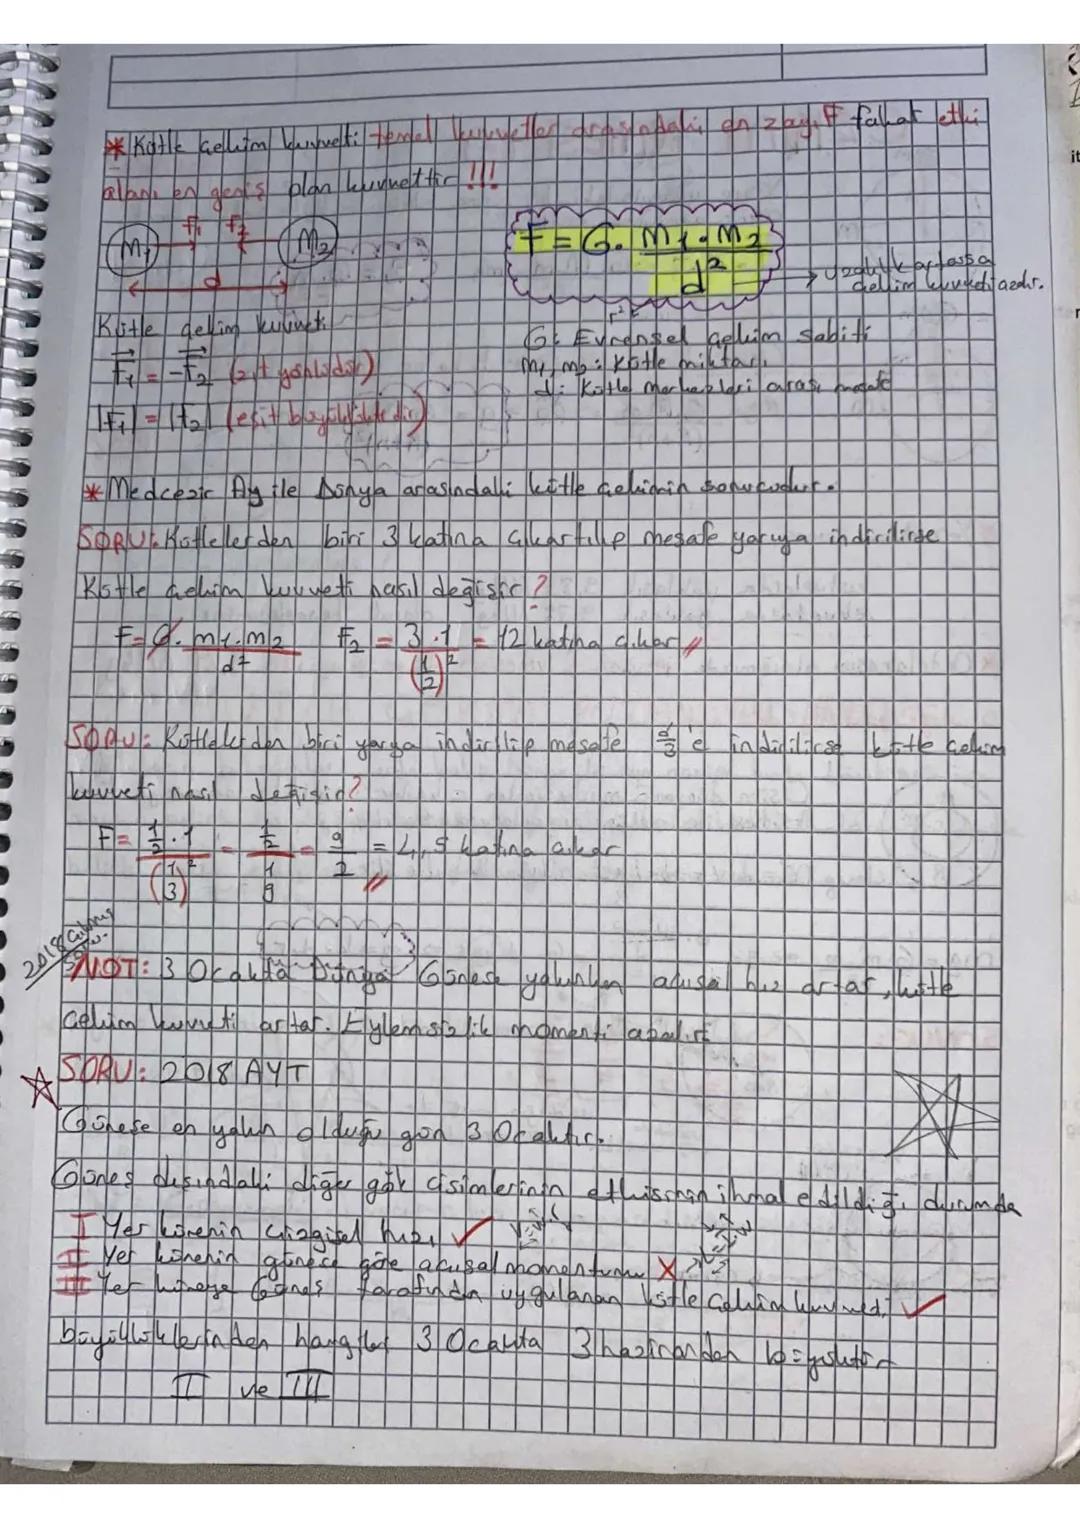 * Kütle Çekim kuvveti temel kuvvetler arasındaki en zayıf fakat etki
alanı en geniş olan kuvvettir !!!
m1 F1 F2 m2
d
F = G. m1.m2 / d²
→ uzaklık artarsa
çekim kuvveti azalır.
Kütle çekim kuvveti
F1 = -F2 (zıt yönlüdür)
|F1| = |F2| (eşit büyüklüktedir)
G: Evrensel çekim sabiti
m1, m2: Kütle miktarı
d: Kütle merkezleri arası mesafe
* Medcezir Ay ile Dünya arasındaki kütle çekimin sonucudur.
SORU: Kütlelerden biri 3 katına çıkartılıp mesafe yarıya indirilirse
Kütle çekim kuvveti nasıl değişir?
F = G. m1.m2 / d² F2 = 3.1 / (1/2)² = 12 katına çıkar //
SORU: Kütlelerden biri yarıya indirilip mesafe d/3 'e indirilirse kütle çekim
kuvveti nasıl değişir?
F = 1/2 . 1 / (1/3)² = 1/2 / 1/9 = 9/2 = 4,5 katına çıkar //
2018 Çıkmış
Soru
NOT: 3 Ocakta Dünya Güneşe yakınken açısal hız artar, kütle
çekim kuvveti artar. Eylemsizlik momenti azalır.
SORU: 2018 AYT
Güneşe en yakın olduğu gün 3 Ocaktır.
Güneş dışındaki diğer gök cisimlerinin etkisinin ihmal edildiği durumda
I Yer kürenin çizgisel hızı ✓
II Yer kürenin güneşe göre açısal momentumu X
III Yer küreye Güneş tarafından uygulanan kütle çekim kuvveti ✓
büyüklüklerinden hangileri 3 Ocakta 3 hazirandan büyüktür
I ve III